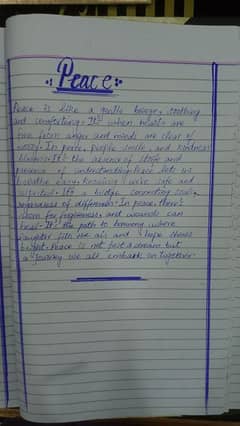 Peace
Peace is like a gentle breeze, soothing
and comforting. It's when hearts are
free from anger and minds are clear of
worry. In peace, people smile, and kindness
blooms. It's the absence of strife and
presence of understanding. Peace lets us
breathe easy, knowing we're safe and
respected. It's a bridge connecting souls,
regardless of differences. In peace, there's
room for forgiveness, and wounds can
heal. It's the path to harmony where
laughter fills the air and hope shines
bright. Peace is not just a dream but
a journey we all embark on together.